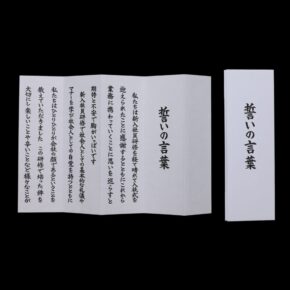 誓いの言葉
私たちは新入社員研修を経て晴れて入社式を
迎えられたことに感謝するとともにこれから
業務に携わっていくことに思いを巡らすと
期待と不安で胸がいっぱいです
新入社員研修で社会人としての基本的な礼儀や
マナーを学び社会人としての自覚を持つとともに
私たちはひとりひとりが会社の顔であるということを
教えていただきました この研修で培った絆を
大切にし楽しいことや辛いことなど様々なことが
誓いの言葉